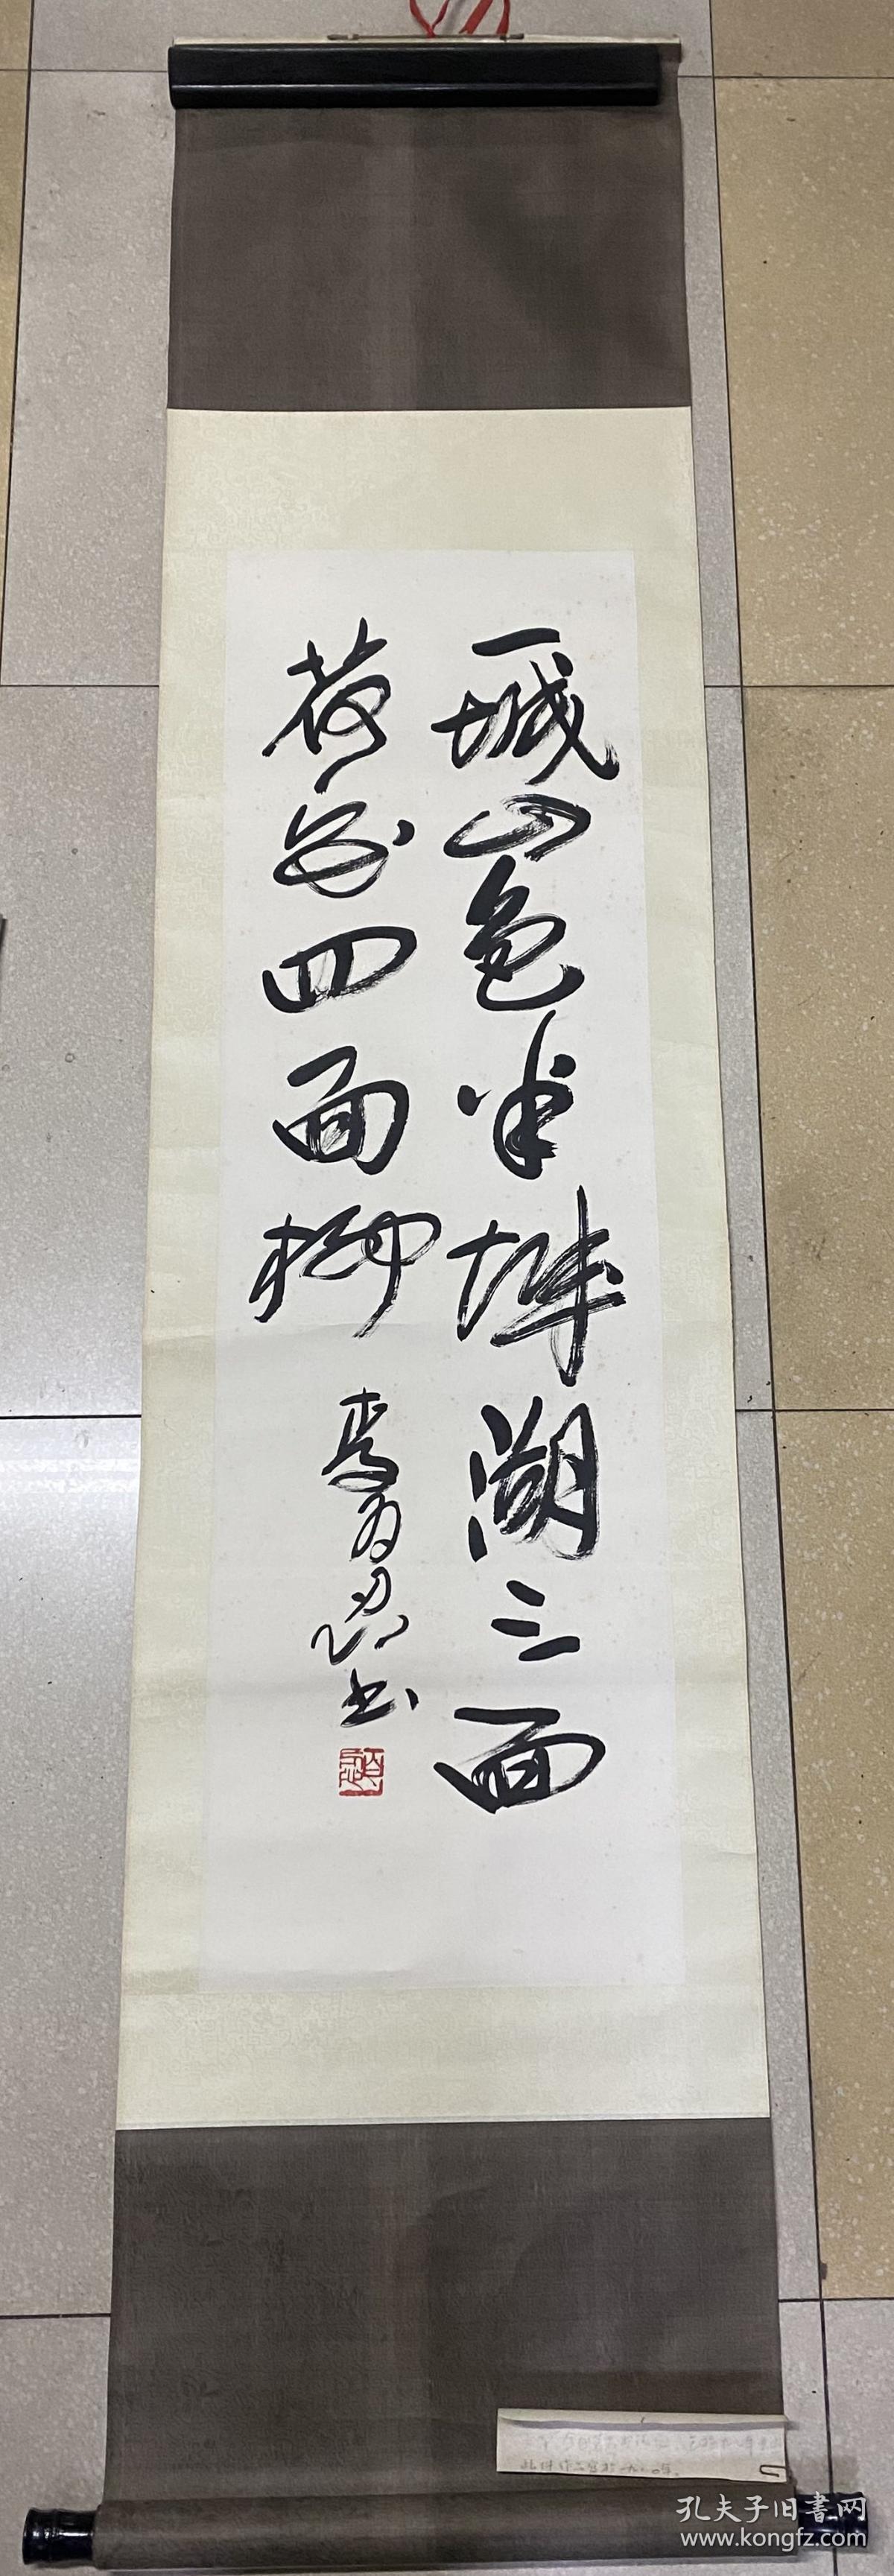 一城山色半城湖三面
荷花四面柳
书
孔夫子旧書网
www.kongfz.com